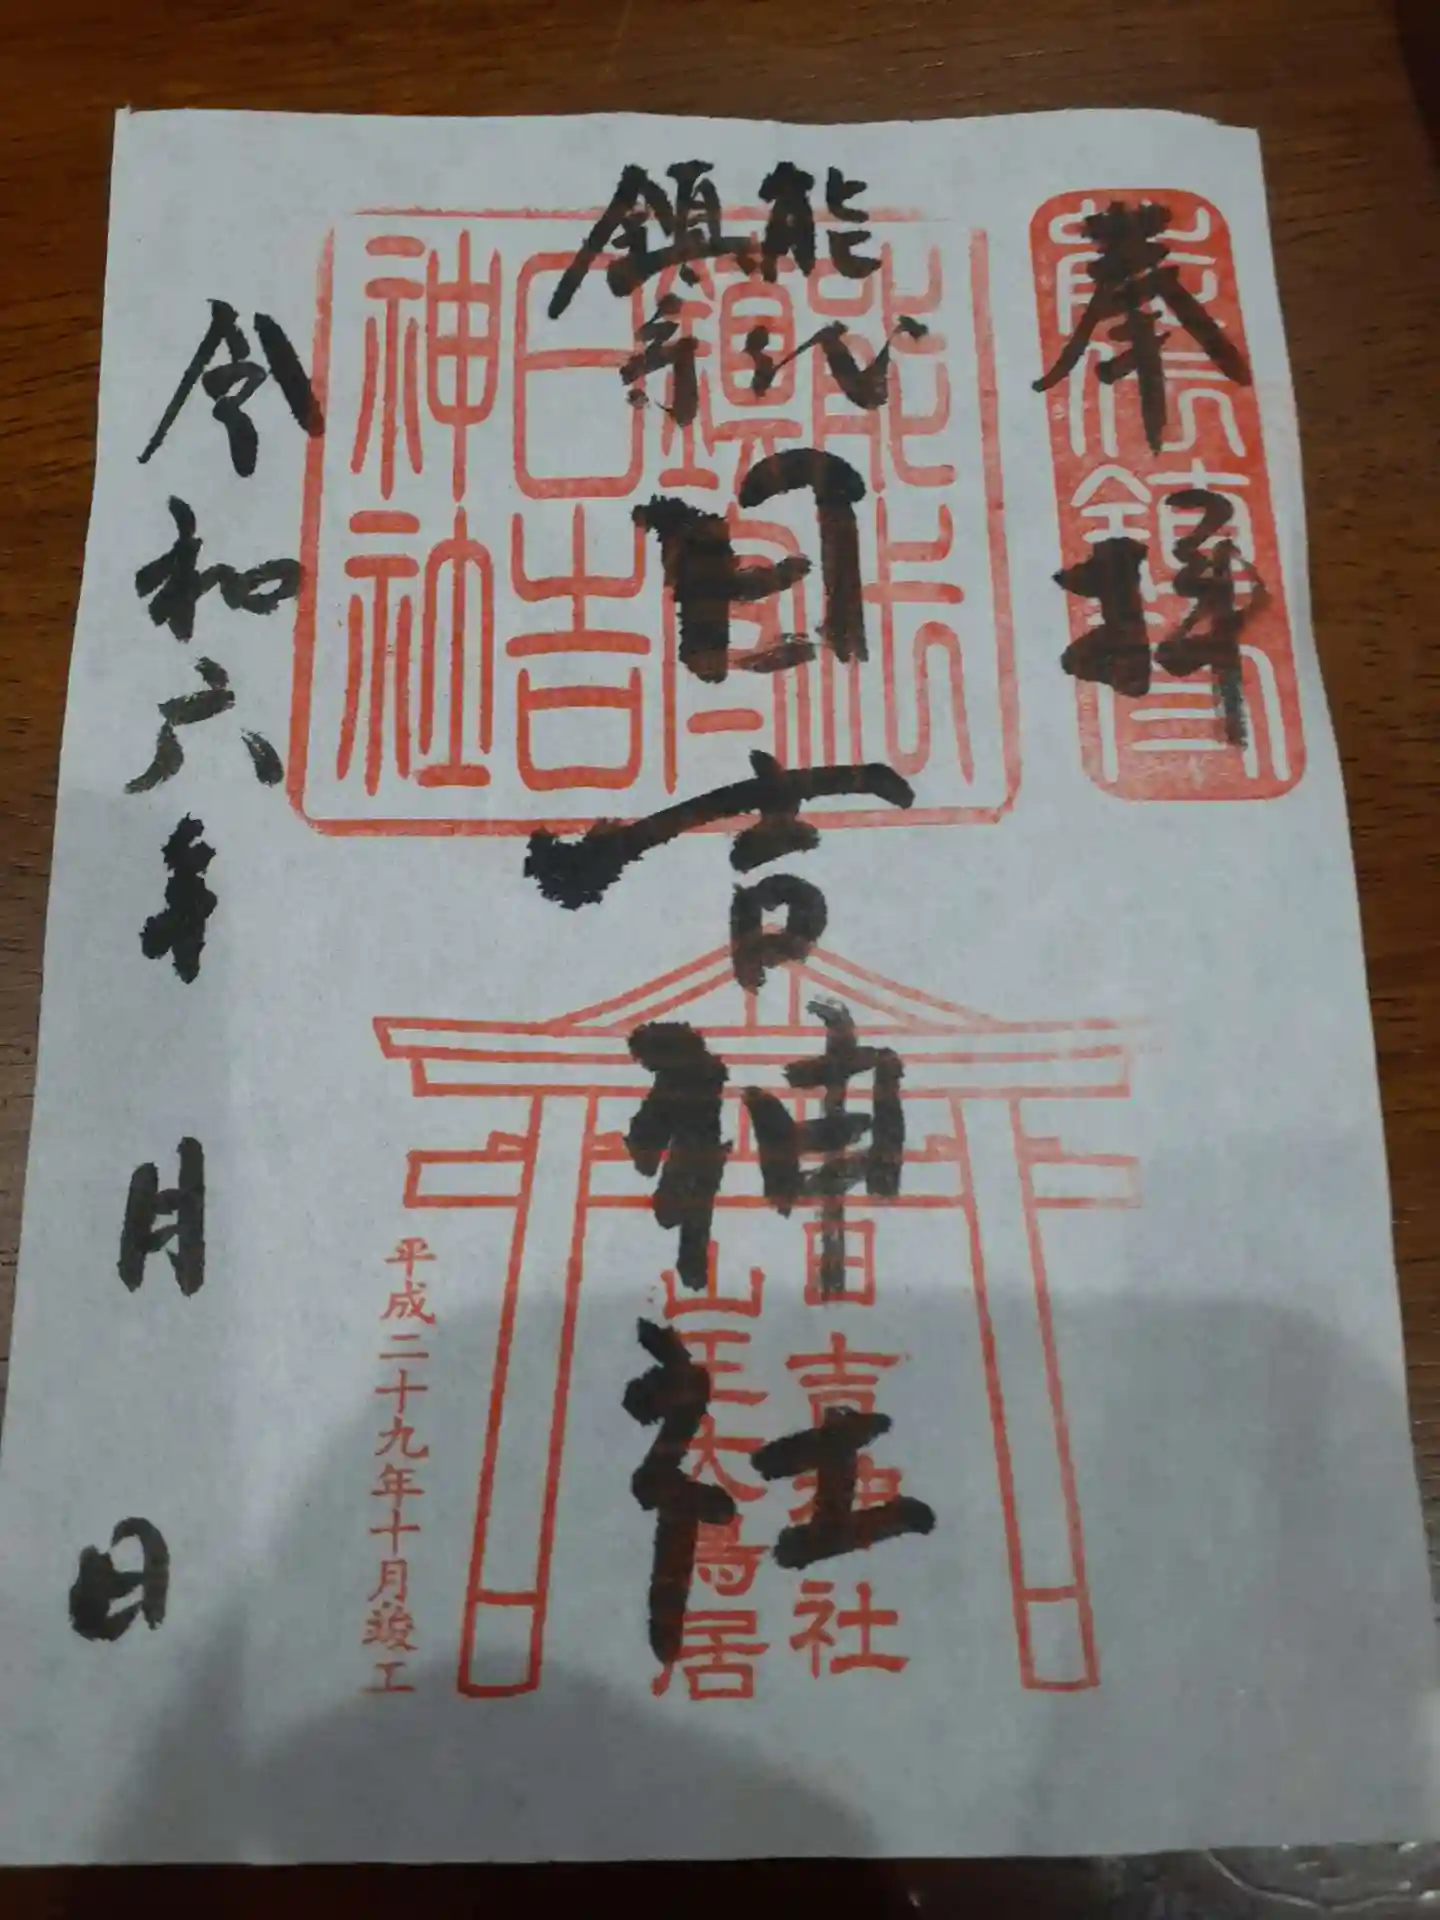 奉拝
能代
鎮守
日吉神社
令和六年 月 日
能代
鎮守
日吉
神社
日吉神社
山王大鳥居
平成二十九年十月竣工